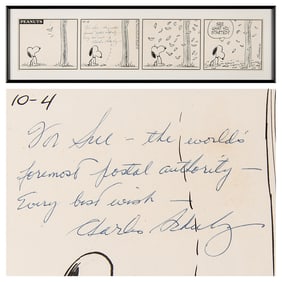 PEANUTS
10-4
For Sue - the world's
foremost postal authority -
Every best wish -
Charles Schulz